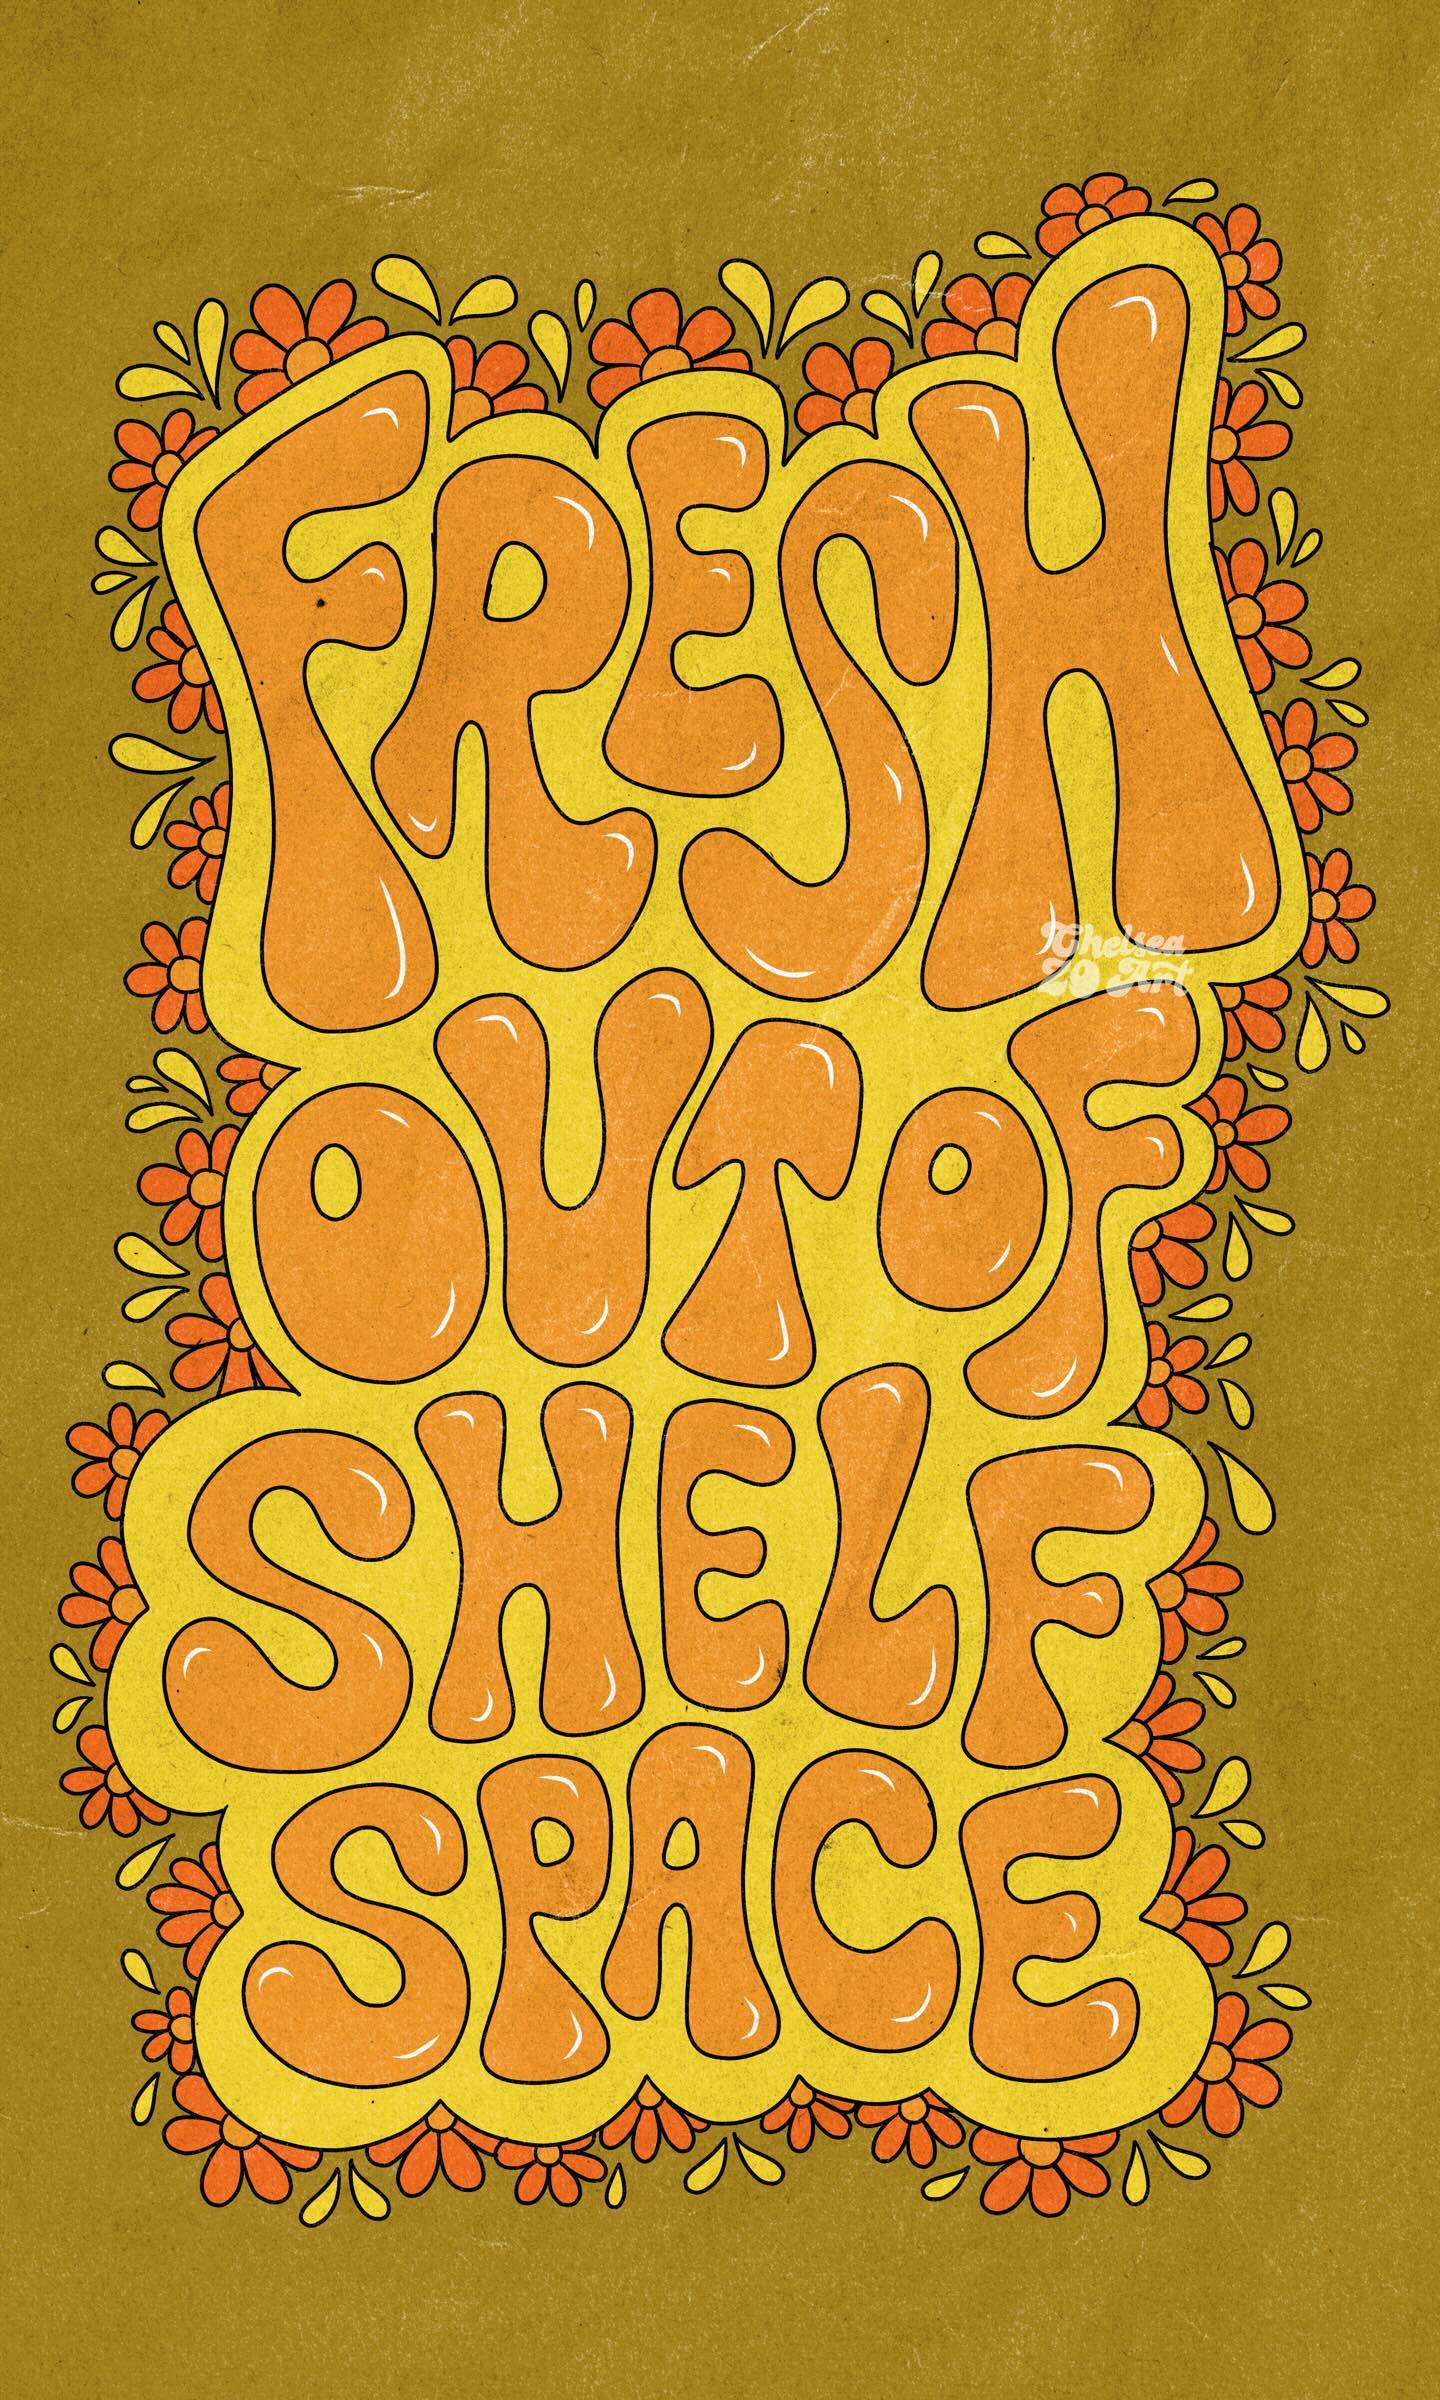 FRESH
OUT OF
SHELF
SPACE
Chelsea
Zo Art